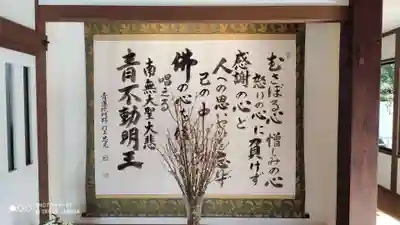 むさぼる心 憎しみの心
怒りの心に負けず
感謝の心と
人への思いやりを忘れず
己の中
佛の心を
唱える
南無大聖大悲
青不動明王